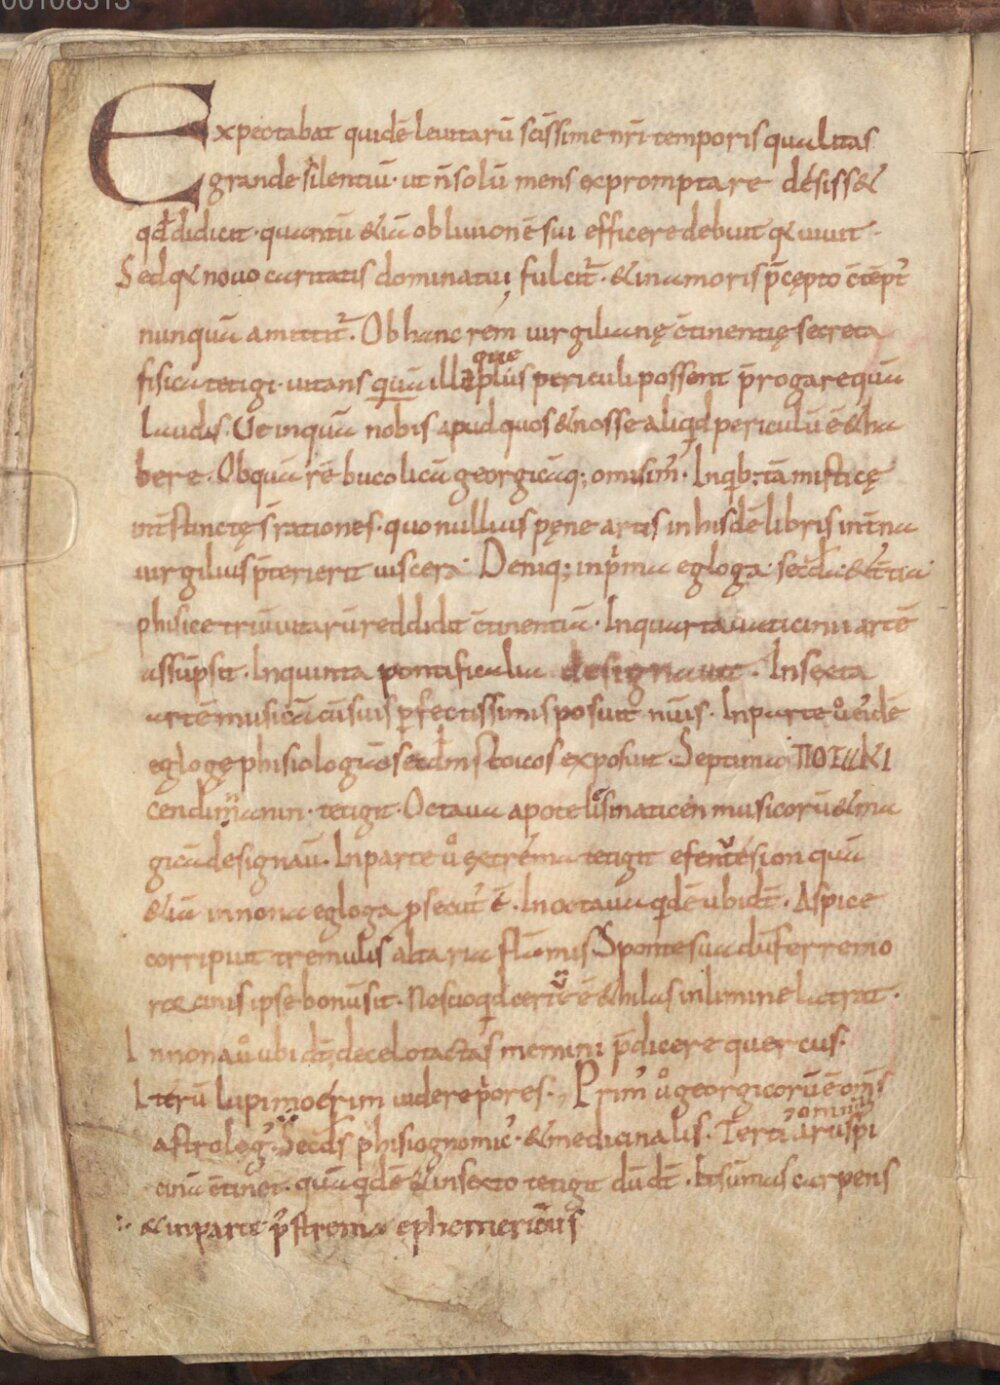 00108313
Expectabat quidē leuitarū sc̄issime nr̄i temporis qualitas
grande silentiū · ut n̄ solū mens expromptare desiss&
qd̄ didicit · quantū &iā obliuionē sui efficere debuit q& uiuit ·
Sed q& nouo caritatis dominatui fulcit̄ · & in amoris p̄cępto
nunquā amittit̄ · Ob hanc rem uirgilianę c̄tinentię secreta
fisica tetigi · uitans quā illa que plus periculi possent p̄rogare quā
laudis · Ue inquā nobis apud quos & nosse aliqd periculū ē & ha
bere · Ob quā rē bucolicā georgicāq; omisim' · In qb; tā misticę
sr̄ rationes · quo nullius pęne artis in hisdē libris int̄na
uirgilius p̄terierit uiscera · Deniq; in p̄ma egloga · sec̄da · & t̄tia
phisice triū uitarū reddidit c̄tinentiā · In quarta uaticinii artē
assūpsit · In quinta pontificalia designauit · In sexta
artē musicā cū suis pfectissimis posuit · In parte ů eidē
eglogę phisiologiā sec̄dm stoicos exposuit · Septima
tetigit · Octaua musicorū & ma
gicā designau̅ · In parte ů extrema tetigit quā
&iā in nona egloga p̄secut' ē · In octaua qdē ubi dt̄ · Aspice
corripuit tremulis altaria flāmis Sponte sua dū ferre mo
ror cinis ipse bonus sit · Nescio qd certe ē & hilas in limine latrat ·
In nona ů ubi dt̄; de celo tactas memini p̄dicere quercus ·
Iterū lupi moerim uidere p̄ores · Prim' ů georgicorū ē om̄s
astrolog' · Sec̄ds phisiognomic' · & medicinalis · Terti' aruspi
omnis
cinā c̄tinet · quā qdē & in sexto tetigit dū dt̄ · Et sūmas carpens
& in parte p'strema ephemerid̄ius